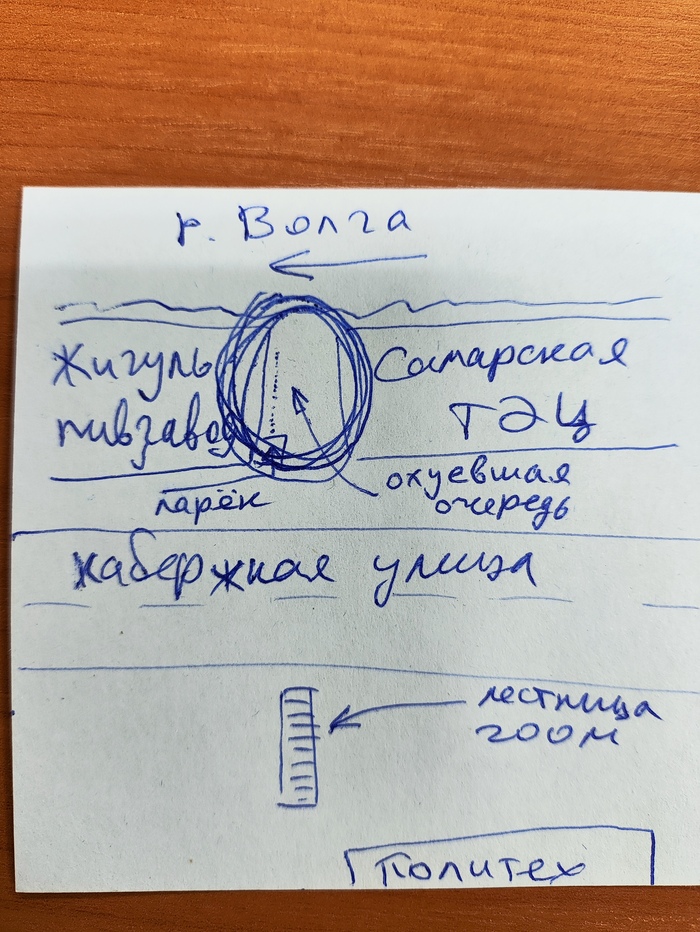 р. Волга
Жигуль
пивзавод
Самарская
ТЭЦ
ларёк
охуевшая
очередь
набержная улица
лестница
200м
Политех